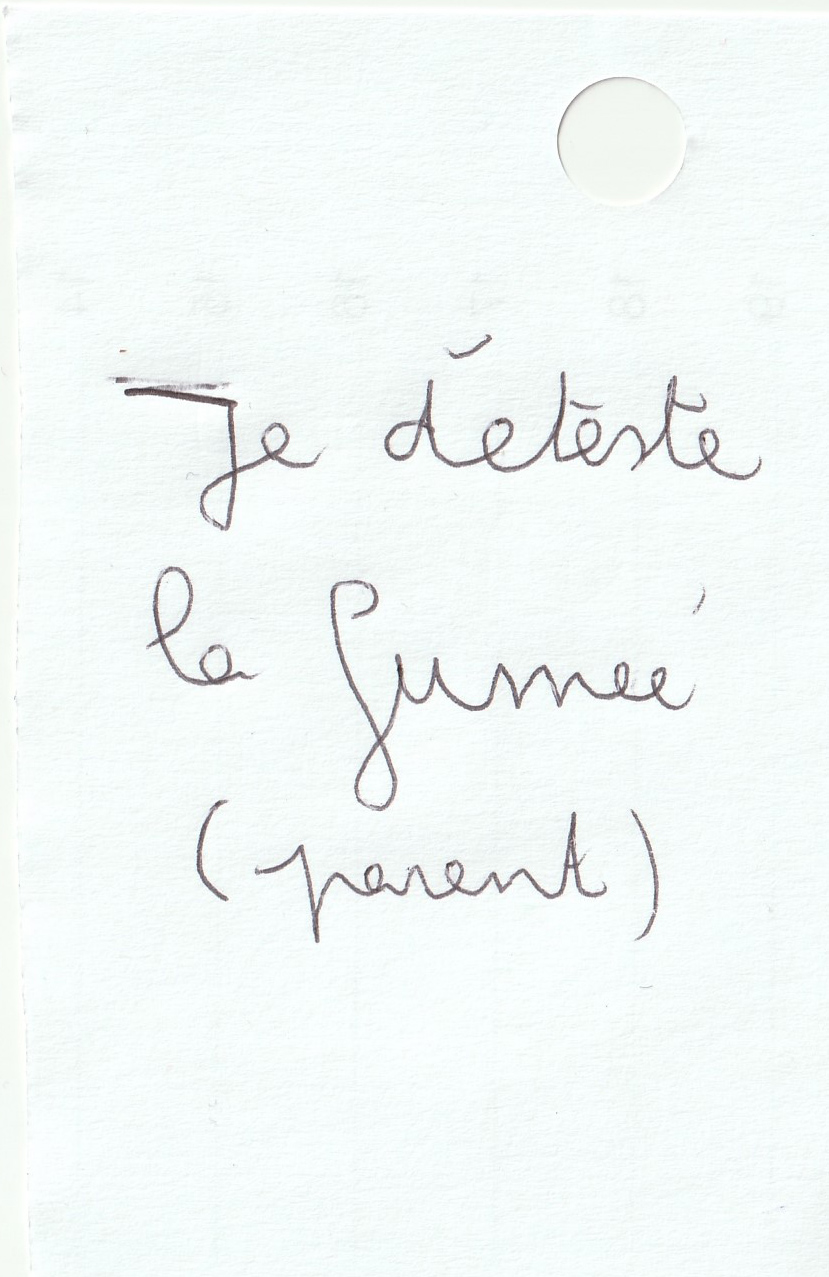 Je déteste
la fumée
(parent)